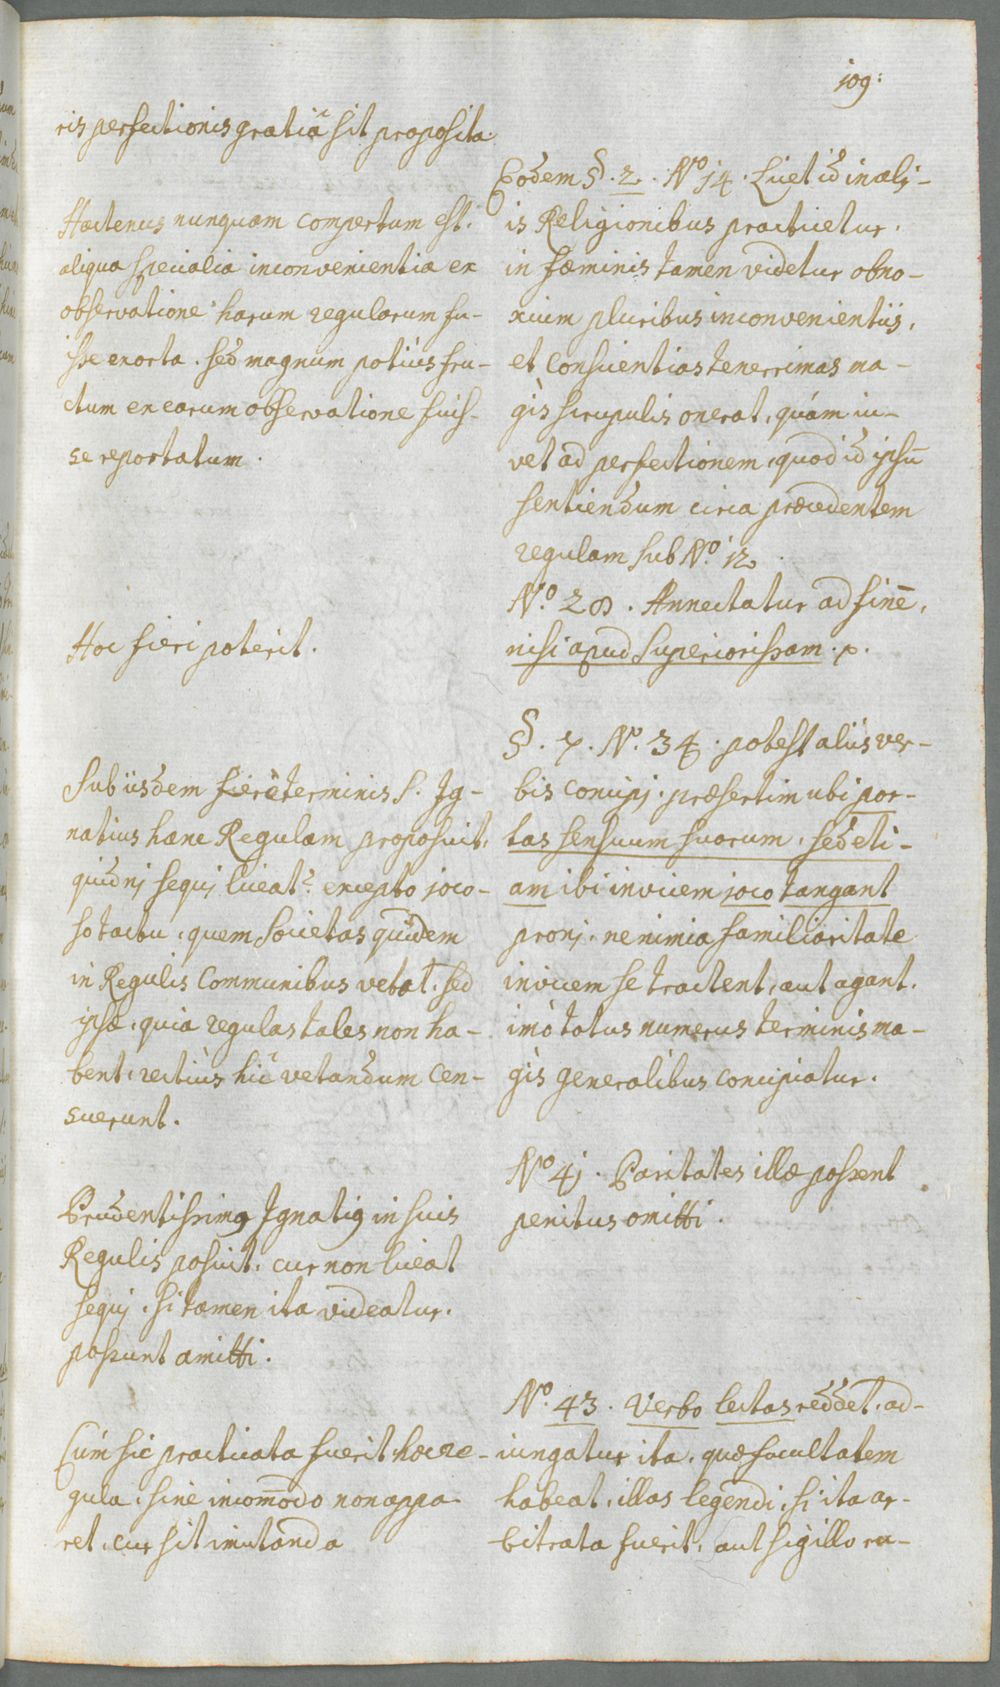 109:
ris perfectionis gratiâ sit proposita.
Hactenus nunquam compertum est,
aliqua specialia inconvenientia ex
observatione harum regularum fu-
isse exorta. sed magnum potiùs fru-
ctum ex earum observatione fuis-
se reportatum.
Hoc fieri poterit.
Sub iisdem ferè terminis S. Ig-
natius hanc Regulam proposuit,
quidnj sequj liceat? excepto joco-
so tactu, quem Societas quidem
in Regulis Communibus vetat, sed
ipsæ, quia regulas tales non ha-
bent, rectiùs hîc vetandum cen-
suerunt.
Prudentissimꝰ Ignatiꝰ in suis
Regulis posuit, cur non liceat
sequj, si tamen ita videatur,
possunt omitti.
Cùm sic practicata fuerit hæc re-
gula, sine incom̄odo non appa-
ret, cur sit imutanda
Eodem §. 2. No 14. Licet id in ali-
is Religionibus practicetur,
in fæminis tamen videtur obno-
xium pluribus inconvenientiis,
et conscientias tenerrimas ma-
gìs scrupulis onerat, quàm iu-
vet ad perfectionem, quod id ipsū
sentiendum circa præcedentem
regulam sub No. 12.
No. 28. Annectatur ad finē,
nisi apud Superiorissam. p.
§. 7. No. 34. potest aliùs ver-
bis concipj, præsertim ubi por-
tas sensuum suorum, sed eti-
am ibi invicem joco tangant
pronj, ne nimia familiaritate
invicem se tractent, aut agant.
imò totus numerus terminis ma-
gìs generalibus concipiatur.
No 41. Paritates illæ possent
penitus omitti.
No. 43. Verbo lectas reddet, ad-
iungatur ita, quæ facultatem
habeat, illas legendi, si ita ar-
bitrata fuerit, aut sigillo ra-